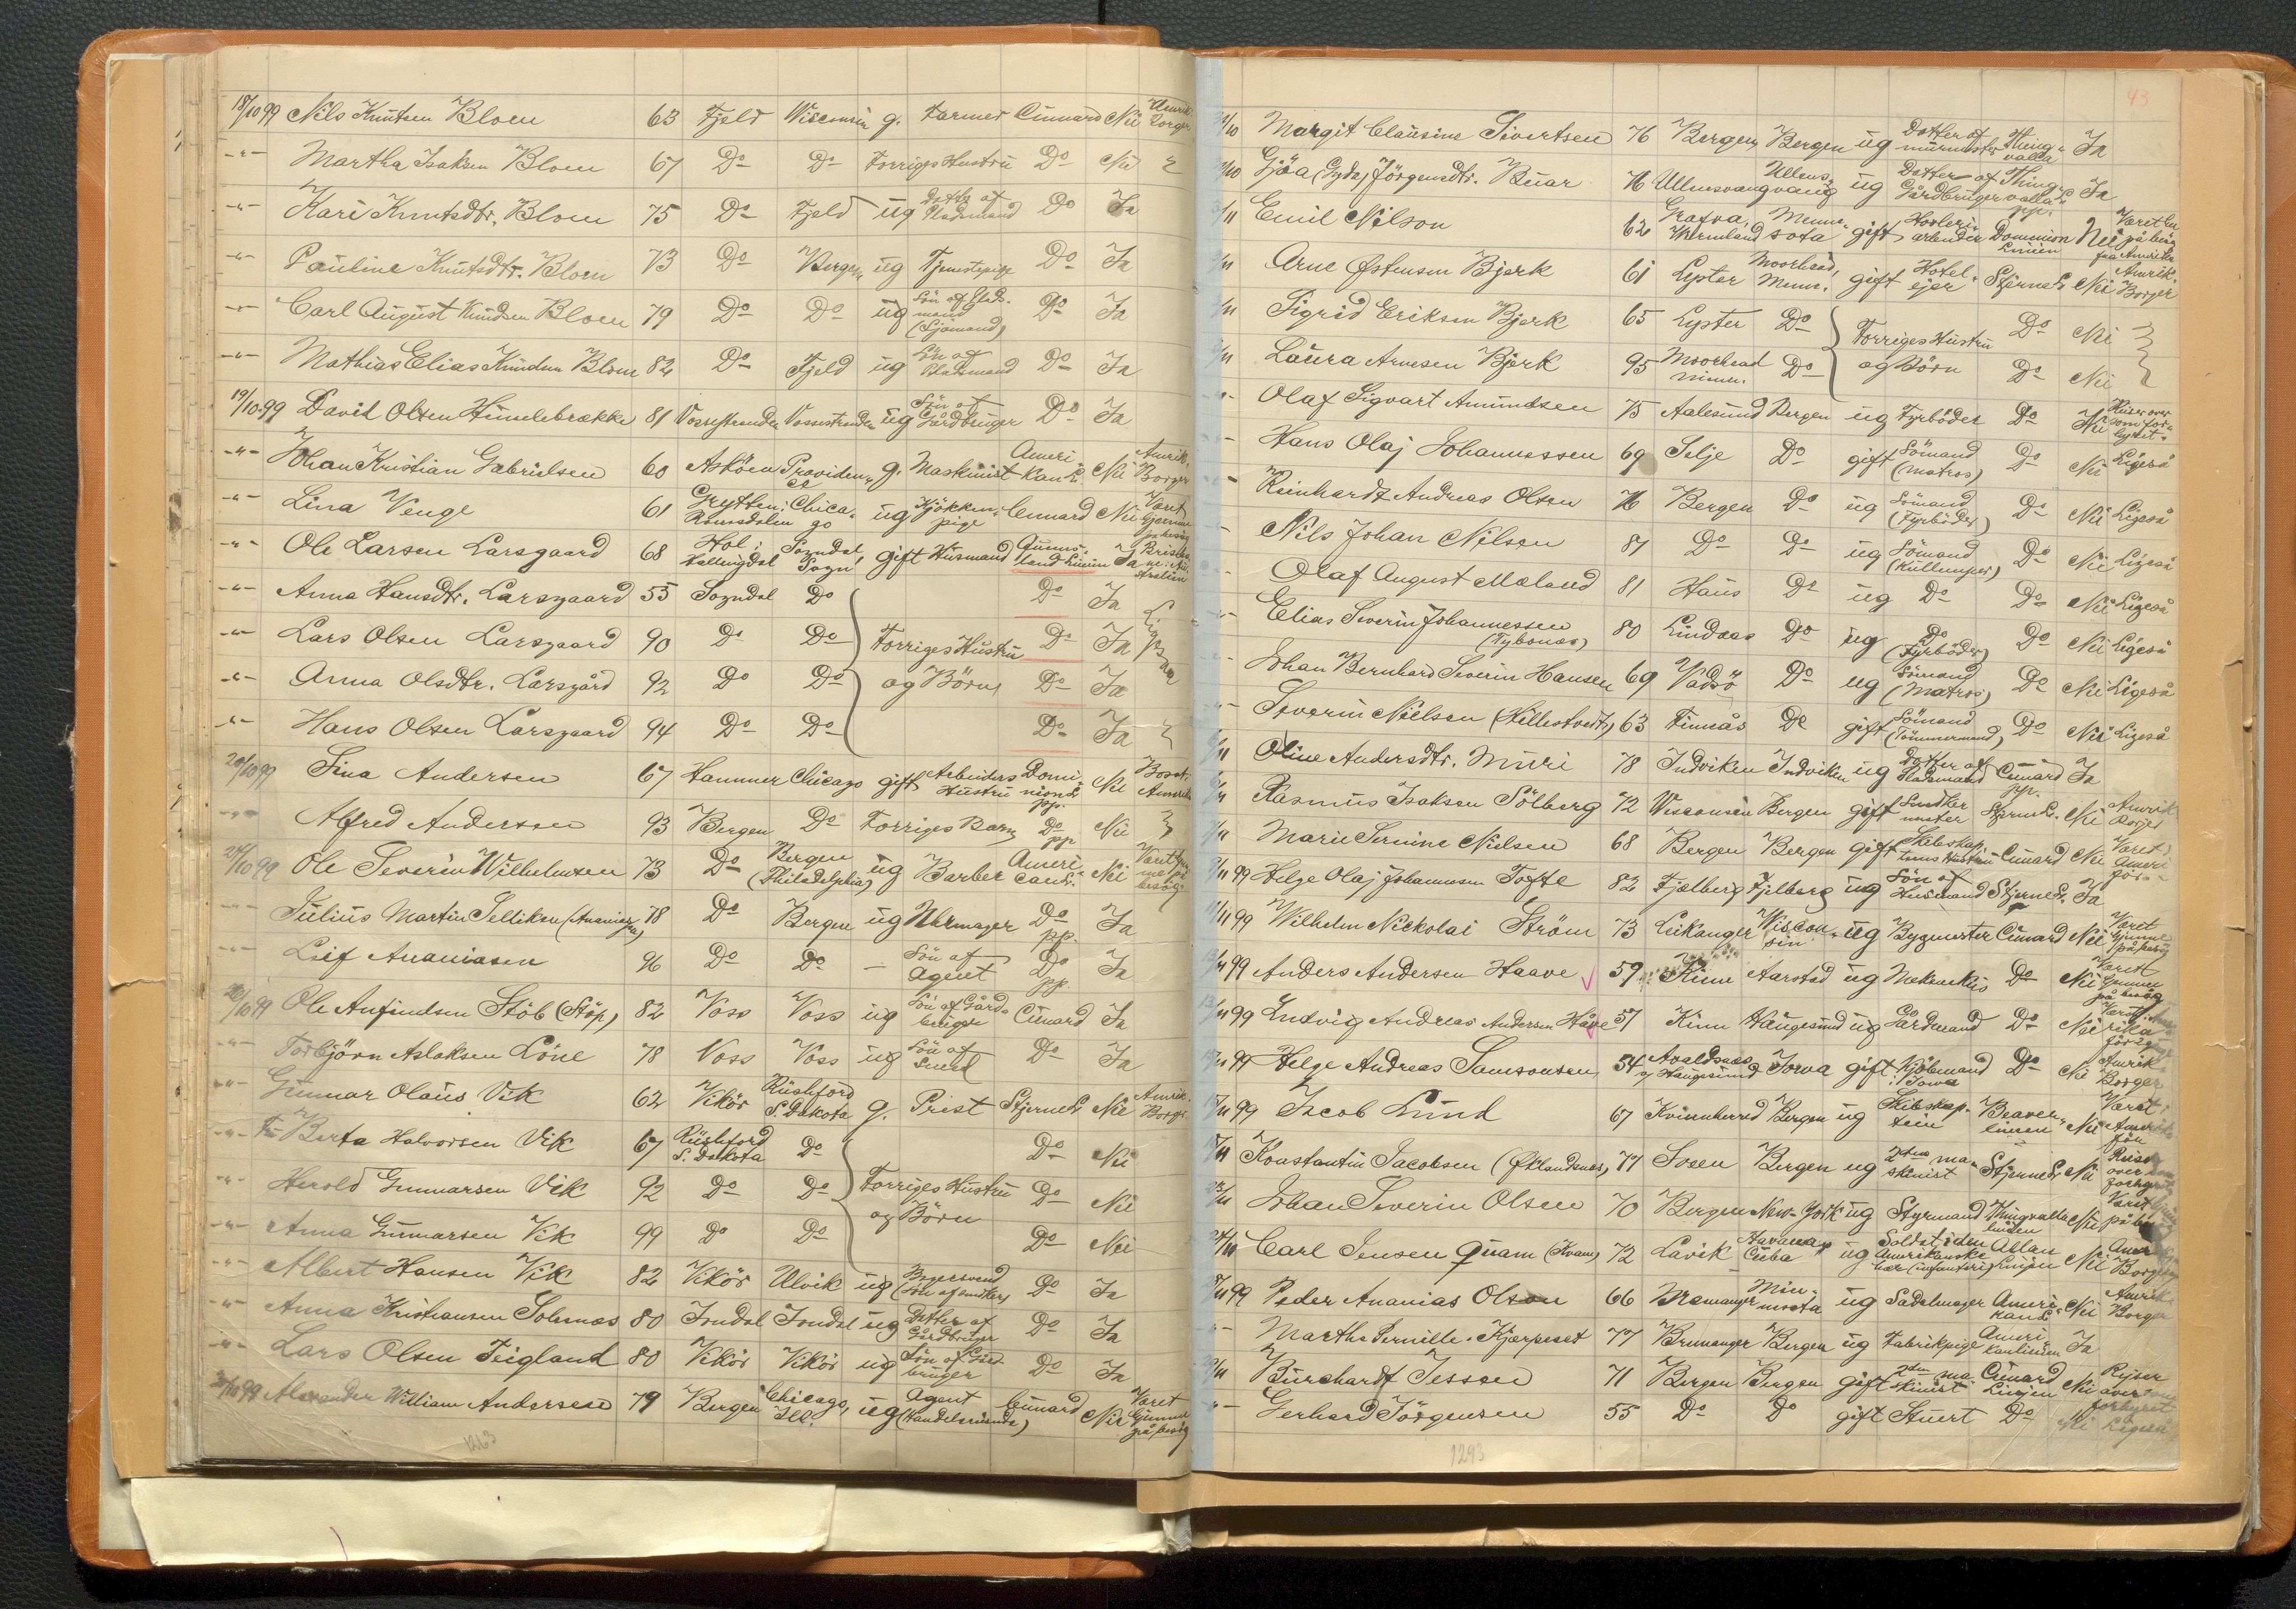 18/10 99 Nils Knutsen Blom 63 Fjeld Wisconsin g. Farmer Cunnard Nei Amerik. Borger
-"- Martha Isaksen Blom 67 Do Do Forriges Hustru Do Nei
-"- Kari Knutsdtr. Blom 75 Do Fjeld ug Datter af Pladsmand Do Ja
-"- Pauline Knutsdtr. Blom 73 Do Bergen ug Tjenestepige Do Ja
-"- Carl August Knudsen Blom 79 Do Do ug Sön af Plads-mand (Sjömand) Do Ja
-"- Mathias Elias Knudsen Blom 82 Do Fjeld ug Sön af Pladsmand Do Ja
19/10 99 David Olsen Himlebrække 81 Vossestranden Vossestranden ug Sön af Gårdbruger Do Ja
-"- Johan Kristian Gabrielsen 60 Asköen Providence g. Maskinist Ameri-kan L. Nei Amerik. Borger
-"- Lina Venge 61 Grytten: Romsdalen Chica-go ug Kjökken-pige Cunnard Nei Været hjemme på besög
-"- Ole Larsen Larsgaard 68 Hol i Hallingdal Sogndal, Sogn gift Husmand Queens-land Linien Ja
-"- Anna Hansdtr. Larsgaard 55 Sogndal Do Do Ja
-"- Lars Olsen Larsgaard 90 Do Do Forriges Hustru Do Ja
-"- Anna Olsdtr. Larsgård 92 Do Do og Börn Do Ja
-"- Hans Olsen Larsgaard 94 Do Do Do Ja
20/10 99 Sina Andersen 67 Hammer Chicago gift Arbeiders Hustru Domi-nion L. pp. Nei Bosat i Amerika
-"- Alfred Andersen 93 Bergen Do Forriges Barn Do pp Nei
24/10 99 Ole Severin Wilhelmsen 73 Do Bergen (Philadelphia) ug Barber Ameri-can L. Nei Været hjemme på besög
-"- Julius Martin Selliken (Ananiassen) 78 Do Bergen ug Uhrmager Do pp. Ja
-"- Leif Ananiasen 96 Do Do - Sön af Agent Do pp. Ja
/10 99 Ole Anfindsen Stöb (Stöp) 82 Voss Voss ug Sön af Gård-bruger Cunard Ja
-"- Torbjörn Aslaksen Löne 78 Voss Voss ug Sön af Smed Do Ja
-"- Gunnar Olaus Vik 62 Vikör Rushford S. Dakota g. Prest Stjerne L. Nei Amerik. Borger
-"- Berta Halvorsen Vik 67 Rushford S. Dakota Do Do Nei
-"- Herold Gunnarsen Vik 92 Do Do Forriges Hustru og Börn Do Nei
-"- Anna Gunnarsen Vik 99 Do Do Do Nei
-"- Albert Hansen Vik 82 Vikör Ulvik ug Bagersvend (Sön af Smed) Do Ja
-"- Anna Kristiansen Solesnæs 80 Jondal Jondal ug Datter af Gårdbruger Do Ja
-"- Lars Olsen Teigland 80 Vikör Vikör ug Sön af Gård-bruger Do Ja
/10 99 Alexander William Andersen 79 Bergen Chicago, Ill. ug Agent (Handelsreisende) Cunard Nei Været hjemme på besög
1263
43
/10 Margit Clausine Sivertsen 76 Bergen Bergen ug Datter af murmester Thing-valla Ja
/10 Gjöa (Gyda) Jörgensdtr. Buar 76 Ullensvang Ullens-vang ug Datter af Gårdbruger Thing-valla pp. Ja
3/11 Emil Nilson 62 Grafva, Wermland Minne-sota gift Hotelier-arbeider Dominion Linien Nei
3/11 Arne Østensen Bjerk 61 Lyster Moorhead, Minn. gift Hotel-ejer Stjerne L. Nei Amerik. Borger
3/11 Sigrid Eriksen Bjerk 65 Lyster Do Forriges Hustru Do Nei
3/11 Laura Arnesen Bjerk 95 Moorhead Minn. Do og Börn Do Nei
-"- Olaf Sigvart Amundsen 75 Aalesund Bergen ug Fyrböder Do Nei Reiser over som for-hyret
-"- Hans Olaj Johannessen 69 Selje Do gift Sömand (Matros) Do Nei Ligeså
-"- Reinhardt Andreas Olsen 76 Bergen Do ug Sömand (Fyrböder) Do Nei Ligeså
-"- Nils Johan Nilsen 81 Do Do ug Sömand (Kullemper) Do Nei Ligeså
-"- Olaf August Mæland 81 Haus Do ug Do Do Nei Ligeså
-"- Elias Severin Johannessen (Fybonæs) 80 Lindaas Do ug Do (Fyrböder) Do Nei Ligeså
-"- Johan Bernhard Severin Hansen 69 Vadsö Do ug Sömand (Matros) Do Nei Ligeså
-"- Severin Nielsen (Hillestvedt) 63 Finnås Do gift Sömand (Tömmermand) Do Nei Ligeså
/11 Oline Andersdtr. Muri 78 Indviken Indviken ug Datter af Pladsmand Cunard pp. Ja
/11 Rasmus Isaksen Sölberg 72 Wisconsin Bergen gift Snedker mester Stjerne L. Nei Amerik. Borger
/11 Marie Sernine Nielsen 68 Bergen Bergen gift Skibskap-teins Hustru Cunard Nei Været i Ameri för
9/11 99 Helge Olaj Johannesen Tofte 82 Fjelberg Fjelberg ug Sön af Husmand Stjerne L. Ja
11/11 99 Wilhelm Nickolai Ström 73 Leikanger Wiscon-sin ug Bygmester Cunard Nei Været hjemme på besög
13/11 99 Anders Andersen Haave 59 Kinn Aarstad ug Mekanikus Do Nei Været hjemme på besög
13/11 99 Ludvig Andreas Andersen Håve 57 Kinn Haugesund ug Gårdmand Do Nei Været i Ame-rika för
/11 99 Helge Andreas Samsonsen 54 Avaldsnæs v/ Haugesund Iowa gift Kjöbmand i Iowa Do Nei Amerik. Borger
/11 99 Jacob Lund 67 Kvinnherred Bergen ug Skibskap-tein Beaver-linien Nei Været i Amerika för
/11 Konstantin Jacobsen (Øklandsnes) 77 Soeen Bergen ug 2den ma-skinist Stjerne L. Nei Reiser over som forhyret
/11 Johan Severin Olsen 70 Bergen New-York ug Styrmand Thingvalla linien Nei
24/11 Carl Jensen Quam (Kvam) 72 Lavik Havana, Cuba ug Soldat i den Amerikanske hær (infanteri) Allan Linjen Nei Amer Borger
/11 99 Peder Ananias Olson 66 Bremanger Min-nesota ug Sadelmager Ameri-kansk Nei Amerik. Borger
-"- Martha Pernille Kjærpeset 77 Bremanger Bergen ug Fabrikpige Ameri-kanlinien Ja
/11 Burchardt Jessen 71 Bergen Bergen gift 2den ma-skinist Cunard Linjen Nei Rejser over som forhyret
-"- Gerhard Jörgensen 55 Do Do gift Stuert Do Nei Ligeså
1293